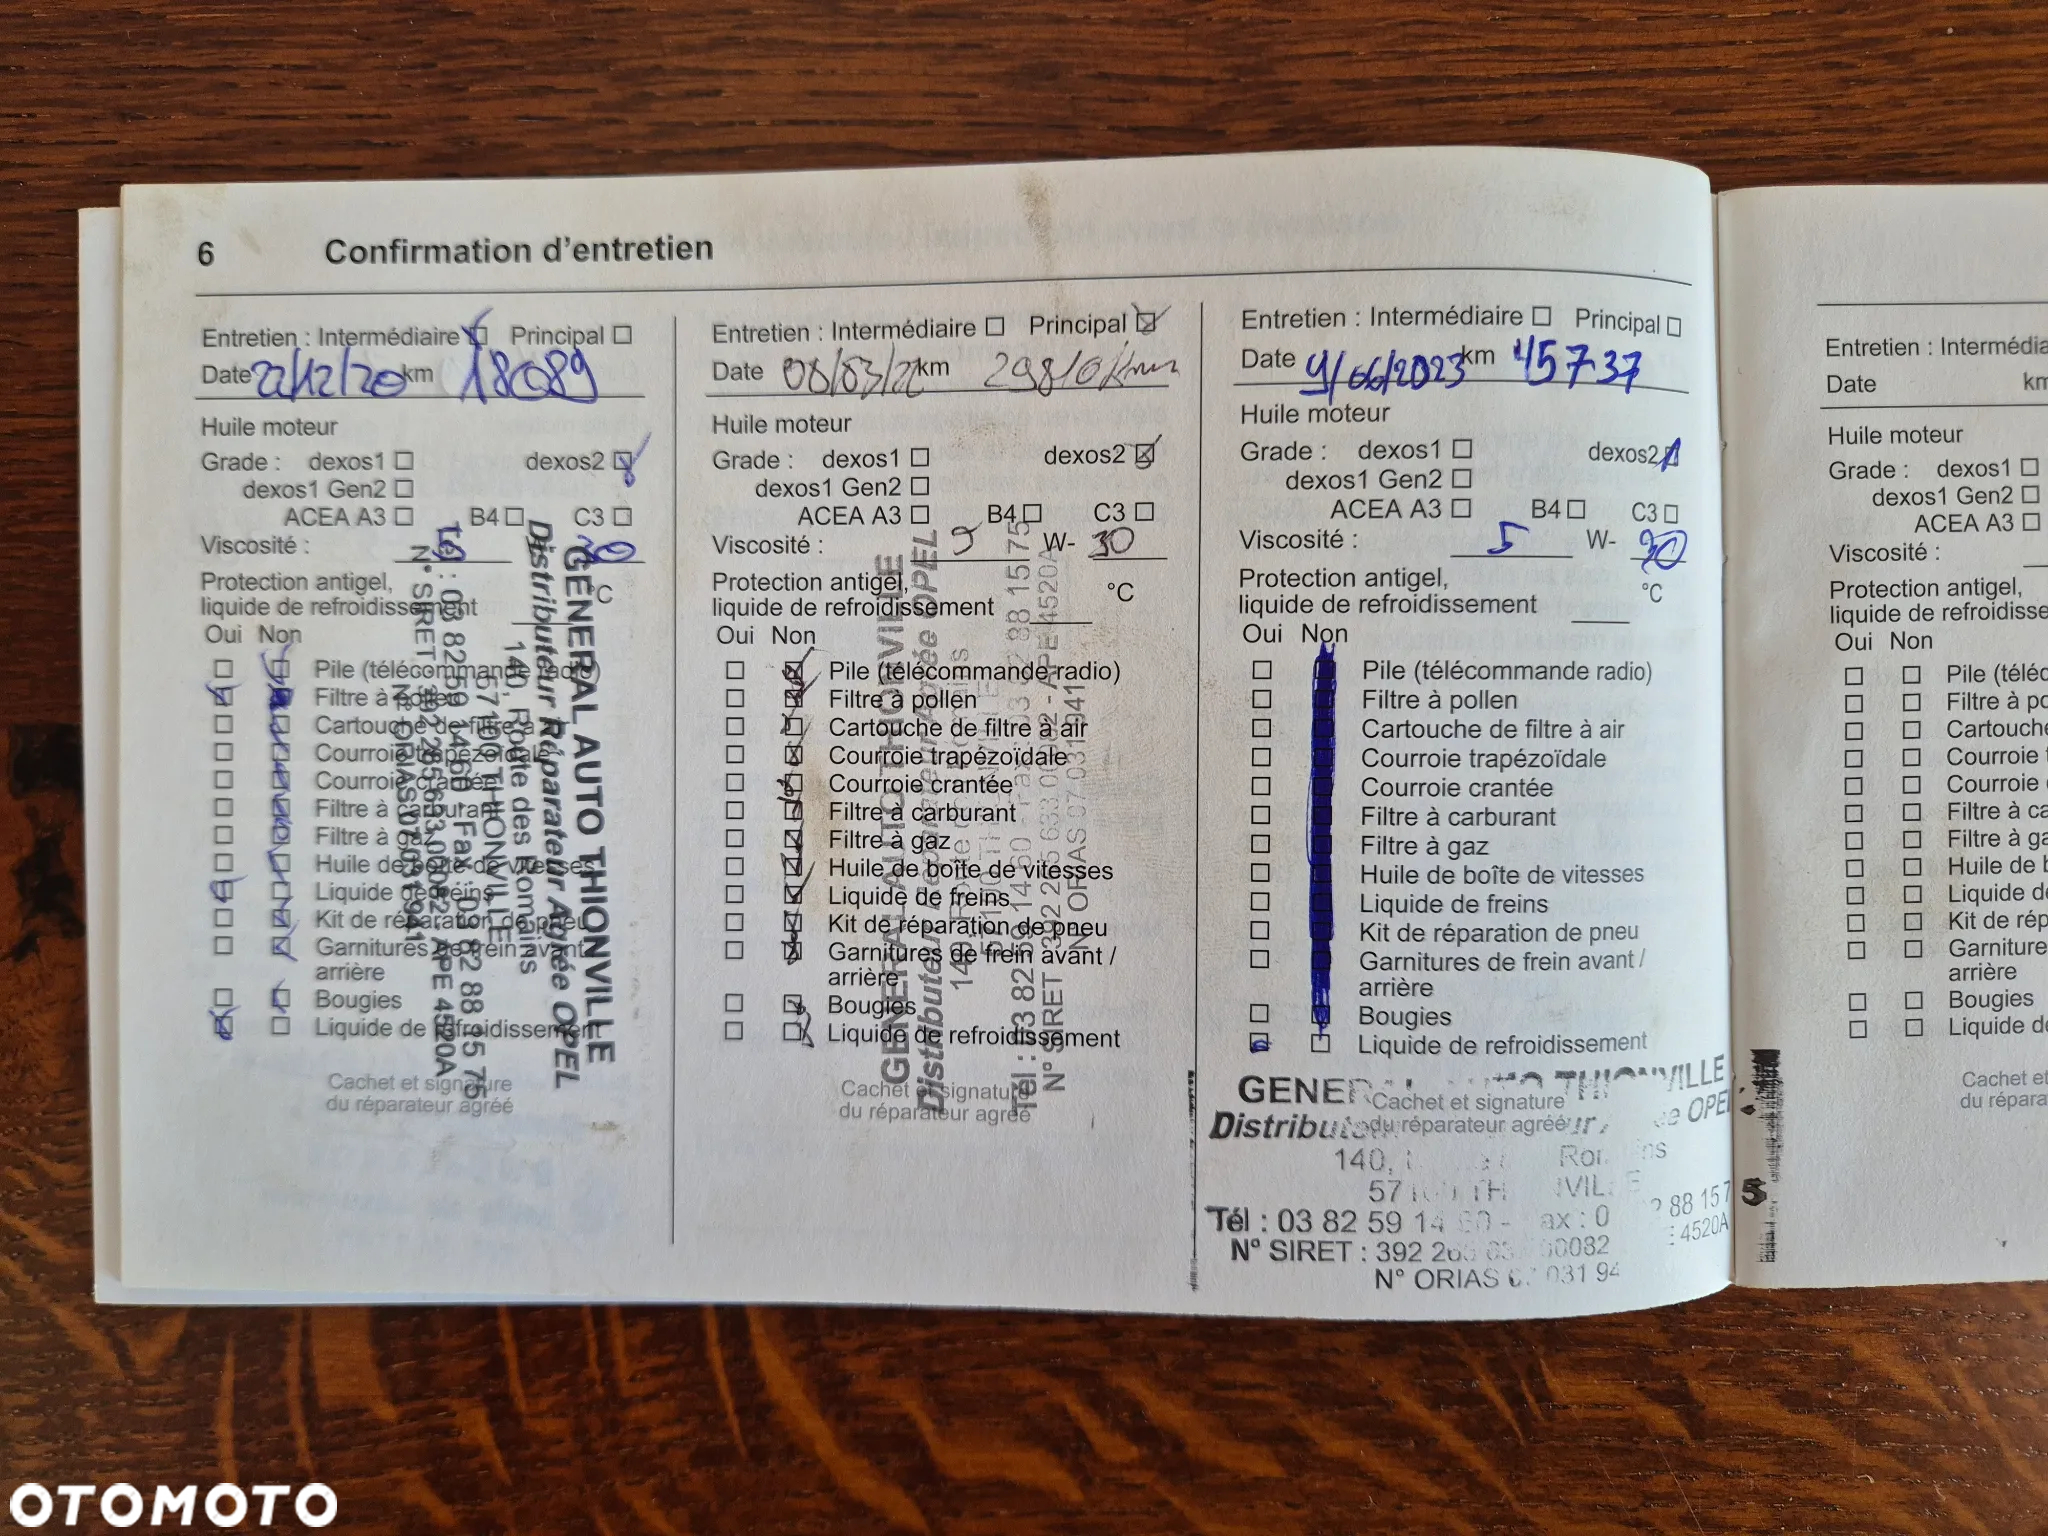 6 Confirmation d'entretien
Entretien : Intermédiaire Principal
Date 22/12/20 km 18089
Huile moteur
Grade : dexos1 dexos2
dexos1 Gen2
ACEA A3 B4 C3
Viscosité : 5 30
Protection antigel, °C
liquide de refroidissement
Oui Non
Pile (télécommande radio)
Filtre à pollen
Cartouche de filtre à air
Courroie trapézoïdale
Courroie crantée
Filtre à carburant
Filtre à gaz
Huile de boîte de vitesses
Liquide de freins
Kit de réparation de pneu
Garnitures de frein avant /
arrière
Bougies
Liquide de refroidissement
Cachet et signature
du réparateur agréé
GENERAL AUTO THIONVILLE
Distributeur Réparateur Agréé OPEL
140, Route des Romains
57100 THIONVILLE
Tél : 03 82 59 14 60 - Fax : 03 82 88 15 75
N° SIRET : 392 265 633 00082 - APE 4520A
N° ORIAS 07 031 941
Entretien : Intermédiaire Principal
Date 08/03/22 km 29810 km
Huile moteur
Grade : dexos1 dexos2
dexos1 Gen2
ACEA A3 B4 C3
Viscosité : 5 W- 30
Protection antigel, °C
liquide de refroidissement
Oui Non
Pile (télécommande radio)
Filtre à pollen
Cartouche de filtre à air
Courroie trapézoïdale
Courroie crantée
Filtre à carburant
Filtre à gaz
Huile de boîte de vitesses
Liquide de freins
Kit de réparation de pneu
Garnitures de frein avant /
arrière
Bougies
Liquide de refroidissement
Cachet et signature
du réparateur agréé
GENERAL AUTO THIONVILLE
Distributeur Réparateur Agréé OPEL
140, Route des Romains
57100 THIONVILLE
Tél : 03 82 59 14 60 - Fax : 03 82 88 15 75
N° SIRET : 392 265 633 00082 - APE 4520A
N° ORIAS 07 031 941
Entretien : Intermédiaire Principal
Date 9/06/2023 km 45737
Huile moteur
Grade : dexos1 dexos2
dexos1 Gen2
ACEA A3 B4 C3
Viscosité : 5 W- 30
Protection antigel, °C
liquide de refroidissement
Oui Non
Pile (télécommande radio)
Filtre à pollen
Cartouche de filtre à air
Courroie trapézoïdale
Courroie crantée
Filtre à carburant
Filtre à gaz
Huile de boîte de vitesses
Liquide de freins
Kit de réparation de pneu
Garnitures de frein avant /
arrière
Bougies
Liquide de refroidissement
GENERAL AUTO THIONVILLE
Cachet et signature
du réparateur agréé
OPEL
140,
Tél : 03 82 59 14 60 -
N° SIRET : 392 4520A
N° ORIAS
Entretien :
Date km
Huile moteur
Grade : dexos1
dexos1 Gen2
ACEA A3
Viscosité :
Protection antigel,
liquide de
Oui Non
Pile
Filtre à
Cartouche
Courroie
Courroie
Filtre à
Filtre à
Huile de
Liquide
Kit de
Garniture
arrière
Bougies
Liquide
Cachet et
du
OTOMOTO